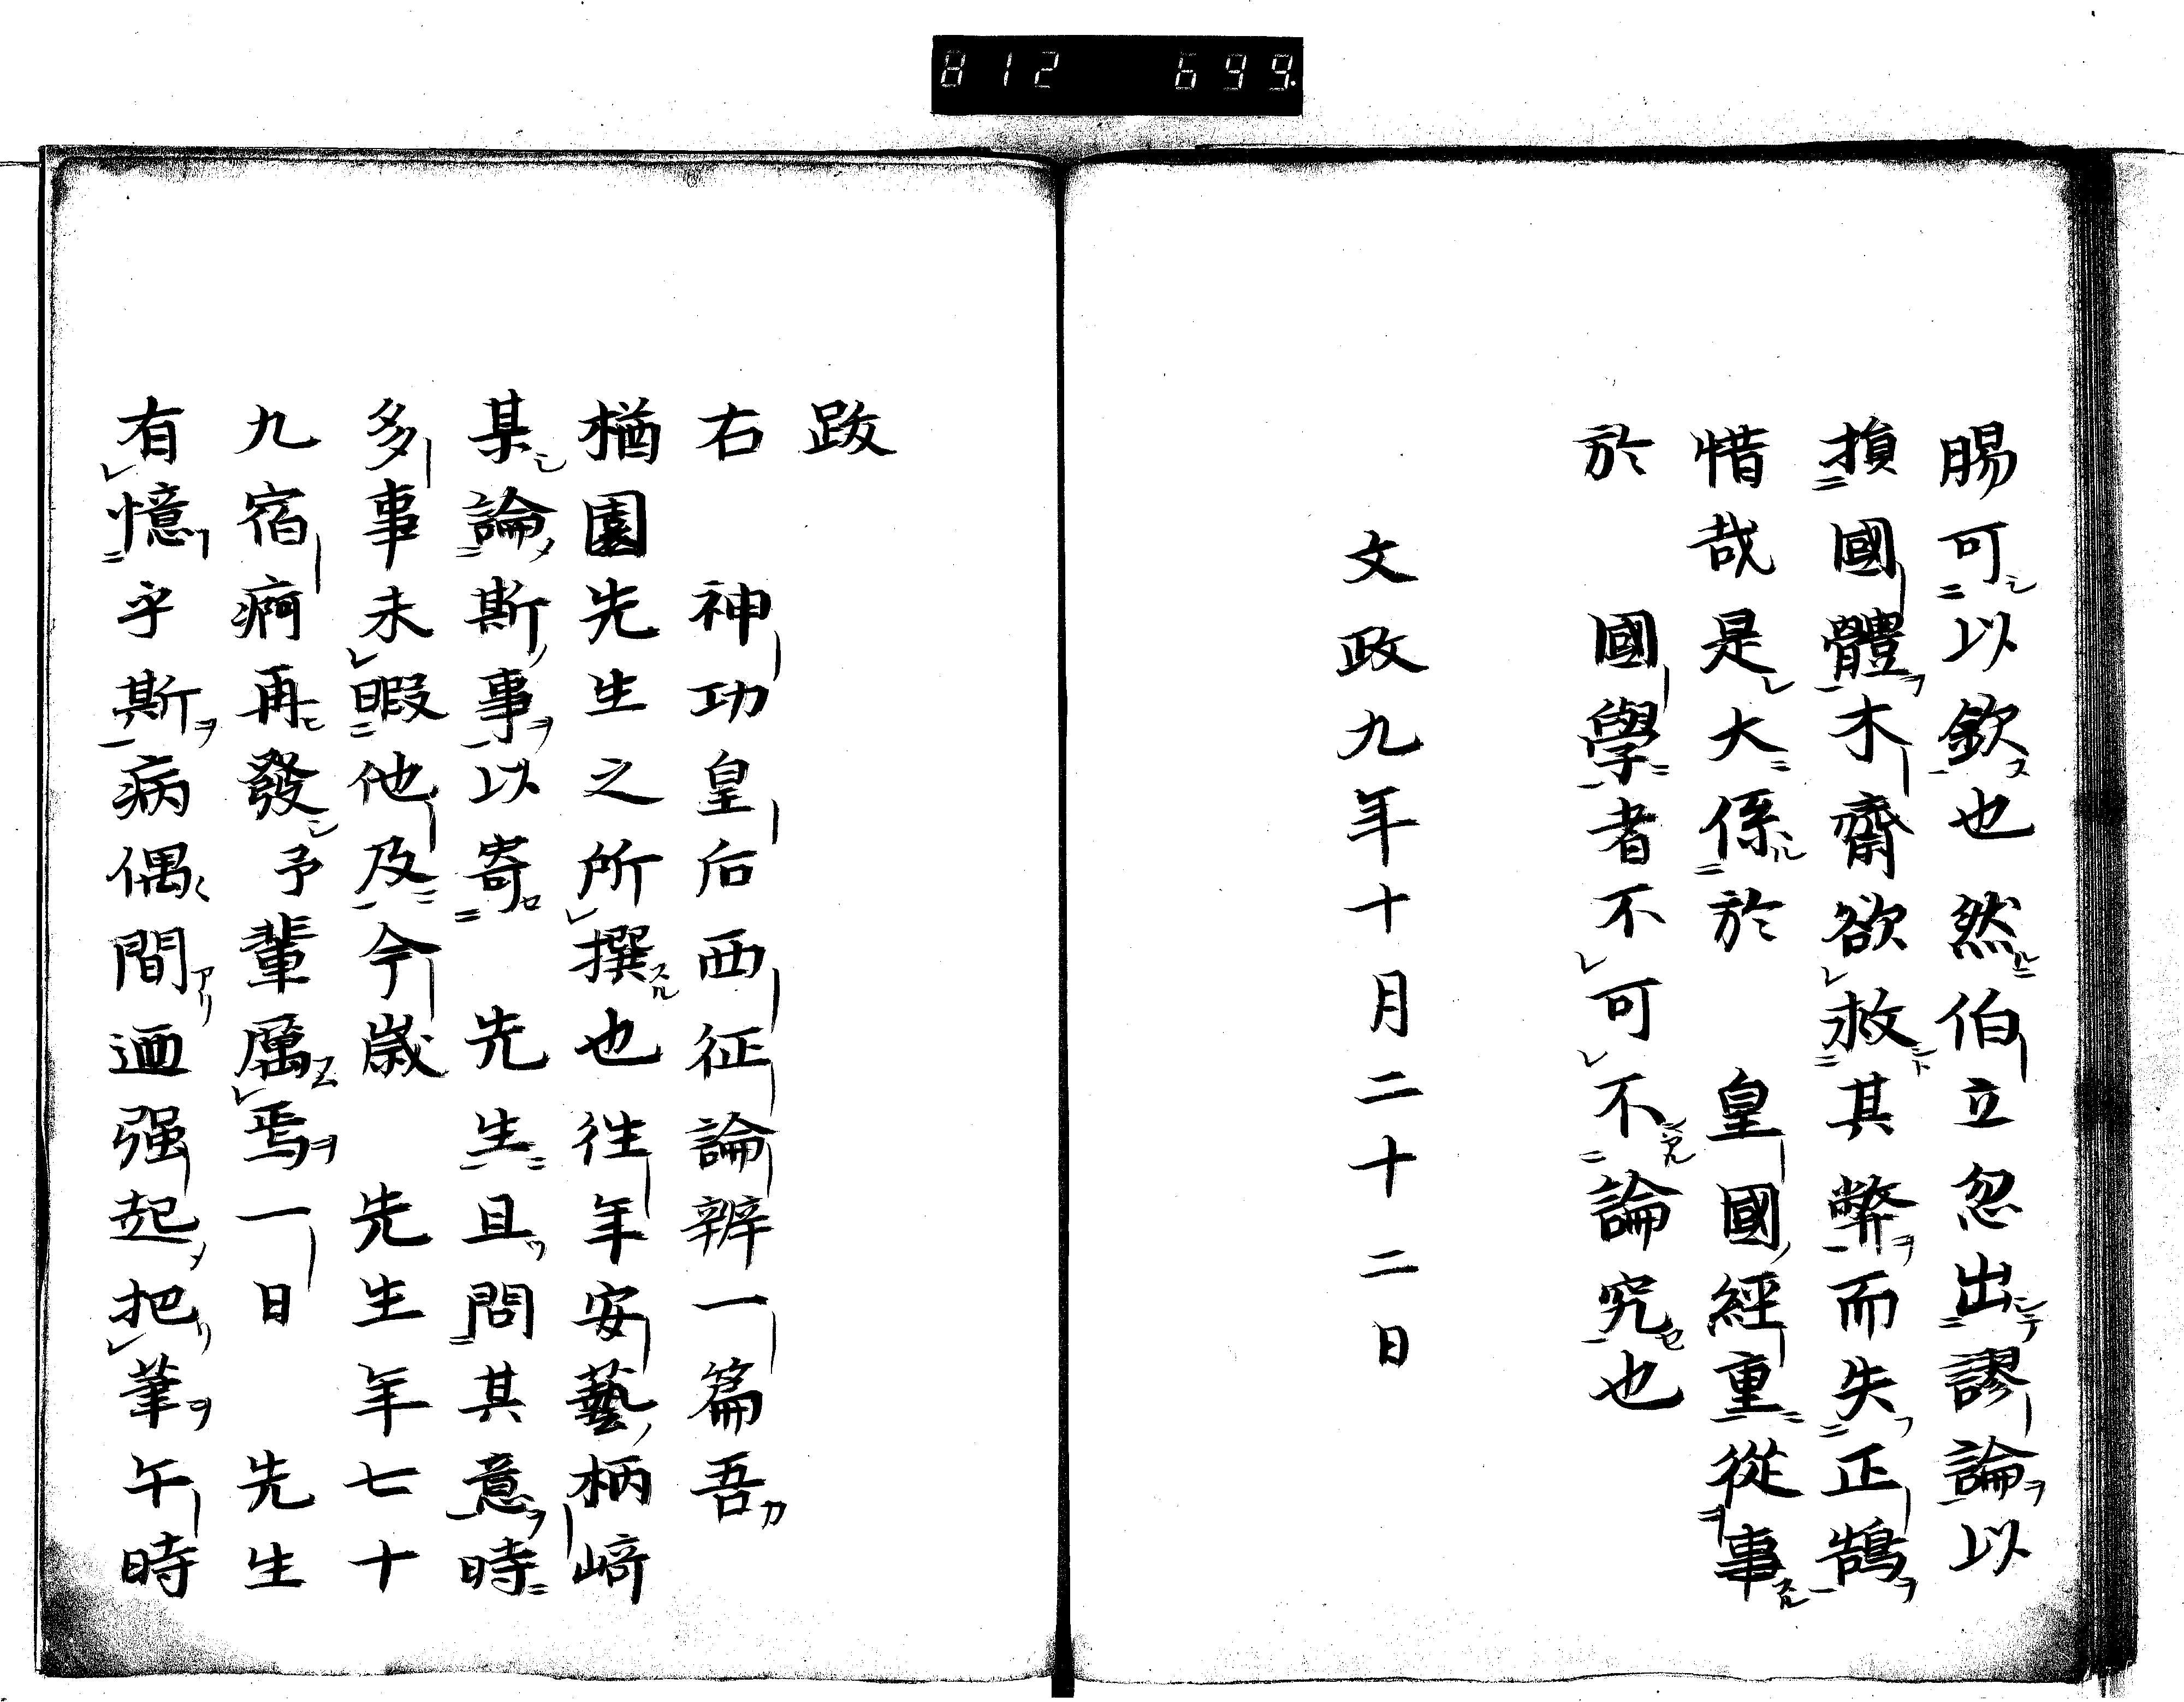 812 699.
賜可以欽也然伯立忽出謬論以
損國體木齋欲救其弊而失正鵠
惜哉是大係於 皇國經重從事
於 國學者不可不論究也
文政九年十月二十二日
跋
右 神功皇后西征論辨一篇吾
楢園先生之所撰也往年安藝柄﨑
某論斯事以寄 先生且問其意時
多事未暇他及今歲 先生年七十
九宿痾再發予輩厲焉一日 先生
有憶乎斯病偶間迺强起把筆午時